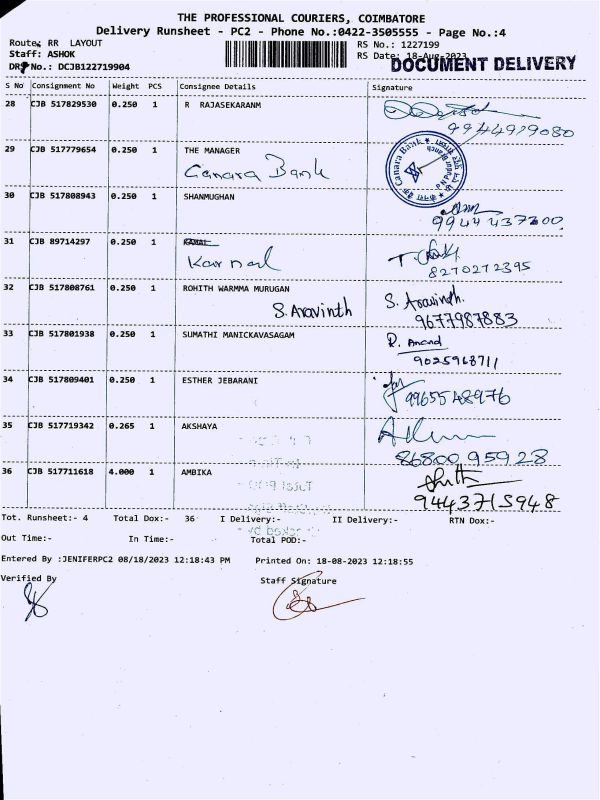 THE PROFESSIONAL COURIERS, COIMBATORE
Delivery Runsheet - PC2 - Phone No.:0422-3505555 - Page No.:4
Route: RR LAYOUT
RS No.: 1227199
Staff: ASHOK
RS Date: 18-Aug-2023
DRS No.: DCJB122719904
DOCUMENT DELIVERY
S No Consignment No Weight PCS Consignee Details Signature
28 CJB 517829530 0.250 1 R RAJASEKARANM
9944919080
29 CJB 517779654 0.250 1 THE MANAGER
Canara Bank
Canara Bank
30 CJB 517808943 0.250 1 SHANMUGHAN
9944437300
31 CJB 89714297 0.250 1
Karnal
8270272395
32 CJB 517808761 0.250 1 ROHITH WARMMA MURUGAN
S. Aravinth S. Aravindh.
9677987883
33 CJB 517801938 0.250 1 SUMATHI MANICKAVASAGAM
R. Anand
9025968711
34 CJB 517809401 0.250 1 ESTHER JEBARANI
9965548976
35 CJB 517719342 0.265 1 AKSHAYA
86800 95928
36 CJB 517711618 4.000 1 AMBIKA
9443715948
Tot. Runsheet:- 4 Total Dox:- 36 I Delivery:- II Delivery:- RTN Dox:-
Out Time:- In Time:- Total POD:-
Entered By :JENIFERPC2 08/18/2023 12:18:43 PM Printed On: 18-08-2023 12:18:55
Verified By Staff Signature